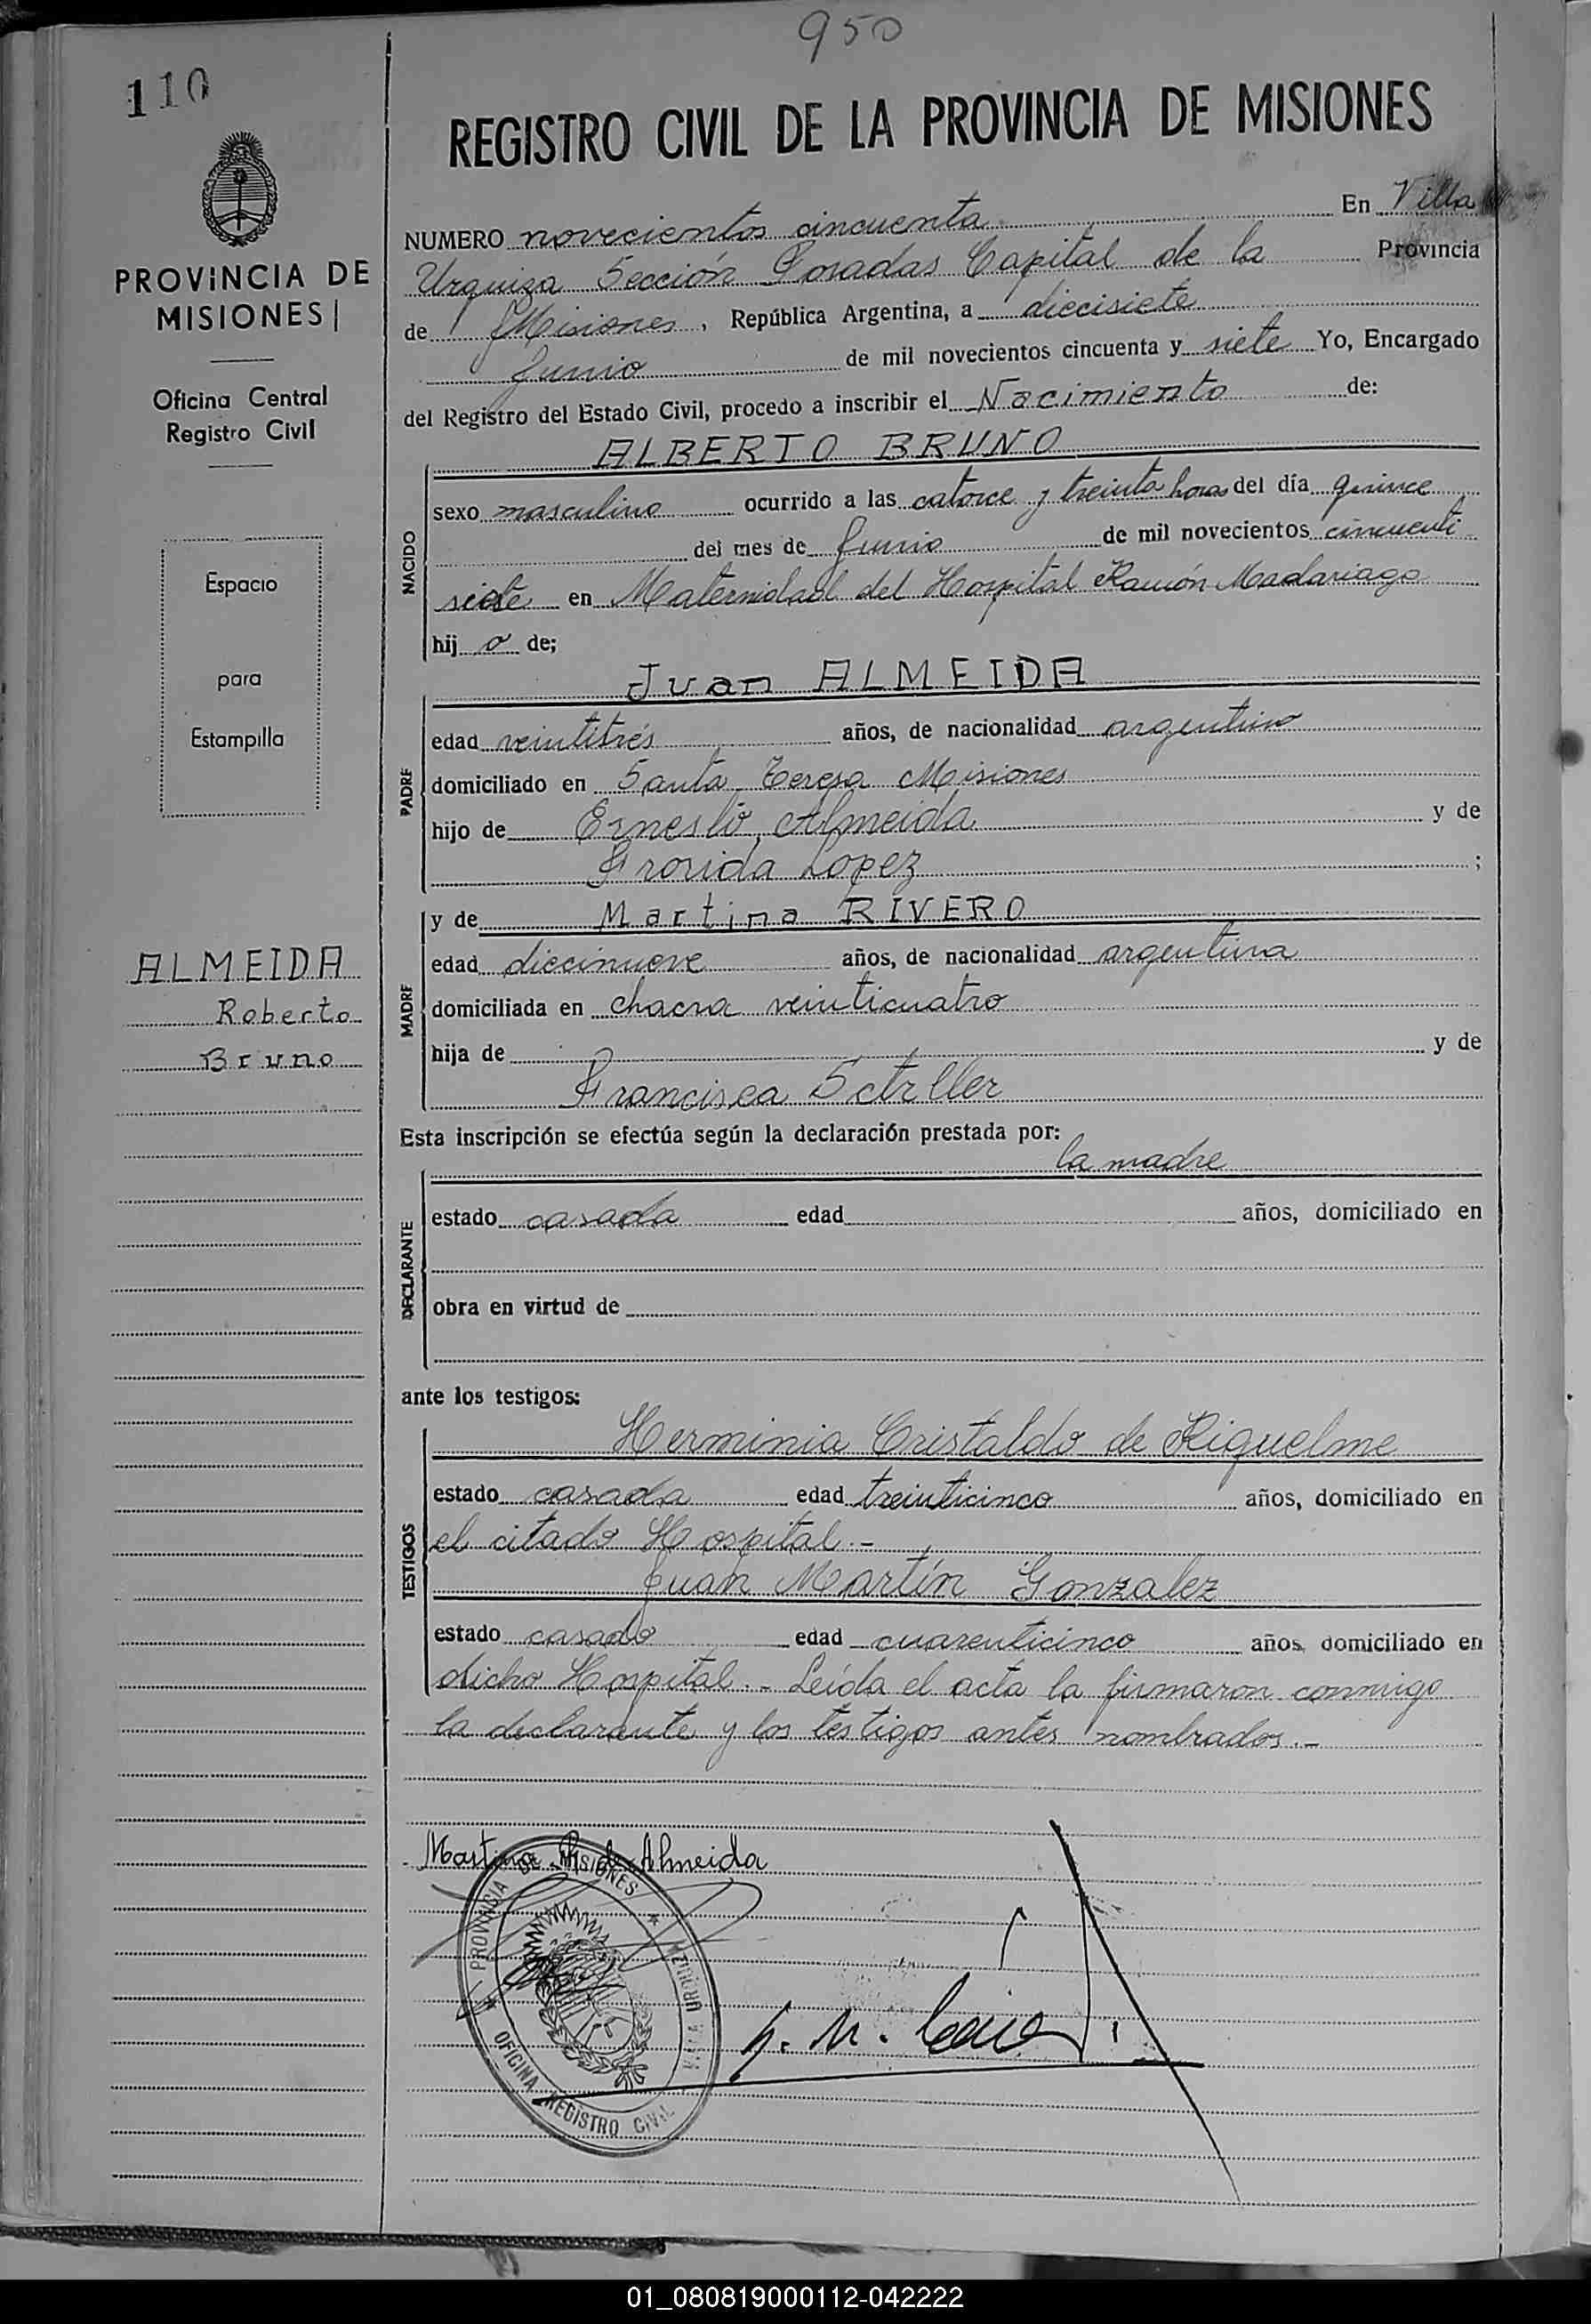 950
110
REGISTRO CIVIL DE LA PROVINCIA DE MISIONES
PROVINCIA DE
MISIONES
Oficina Central
Registro Civil
Espacio
para
Estampilla
ALMEIDA
Roberto
Bruno
NUMERO novecientos cincuenta En Villa
Urquiza Sección Posadas Capital de la Provincia
de Misiones, República Argentina, a diecisiete
Junio de mil novecientos cincuenta y siete Yo, Encargado
del Registro del Estado Civil, procedo a inscribir el Nacimiento de:
ALBERTO BRUNO
NACIDO
sexo masculino ocurrido a las catorce y treinta horas del día quince
del mes de Junio de mil novecientos cincuenti
siete en Maternidad del Hospital Ramón Madariaga
hij o de;
Juan ALMEIDA
PADRE
edad veintitrés años, de nacionalidad argentino
domiciliado en Santa Teresa Misiones
hijo de Ernesto Almeida y de
Lopez ;
y de Martina RIVERO
MADRE
edad diecinueve años, de nacionalidad argentina
domiciliada en chacra veinticuatro
hija de y de
Francisca
Esta inscripción se efectúa según la declaración prestada por:
la madre
DECLARANTE
estado casada edad años, domiciliado en
obra en virtud de
ante los testigos:
TESTIGOS
Herminia Cristaldo de Riquelme
estado casada edad treinticinco años, domiciliado en
el citado Hospital.-
Juan Martín Gonzalez
estado casado edad cuarenticinco años, domiciliado en
dicho Hospital.- Leída el acta la firmaron conmigo
la declarante y los testigos antes nombrados.-
Martina R. de Almeida
PROVINCIA DE MISIONES
OFICINA REGISTRO CIVIL
01_080819000112-042222